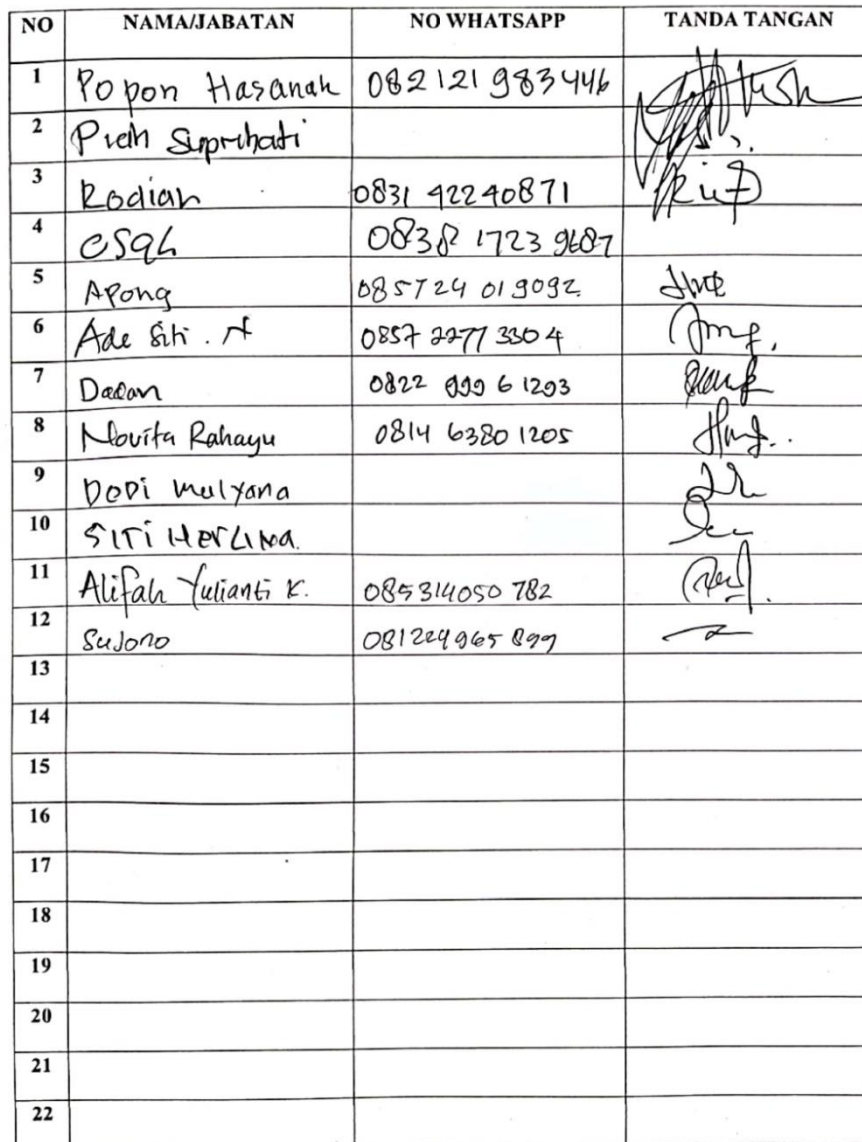 NO NAMA/JABATAN NO WHATSAPP TANDA TANGAN
1 Popon Hasanah 082121983446
2 Suprihati
3 Rodiah 0831 42240871
4 0838 1723 9687
5 Apong 085724 019092
6 Ade Siti . N 0857 2277 3304
7 Dadan 0822 999 6 1293
8 Novita Rahayu 0814 6380 1205
9 DeDi Mulyana
10 SITI HerLiNa.
11 Alifah Yulianti K. 085314050 782
12 Sujono 081224965 899
13
14
15
16
17
18
19
20
21
22